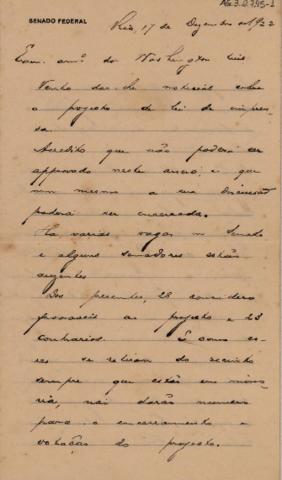 AG.3.0.7.45-1
SENADO FEDERAL
Rio, 17 de Dezembro de 1922
Exm. am.º dr. Washington Luis
Venho dar-lhe noticias sobre
o projecto de lei de impren
sa.
Acredito que não poderá ser
approvado neste anno, e que
nem mesmo a sua discussão
poderá ser encerrada.
Ha varias vagas no Senado
e alguns senadores estão
ausentes.
Dos presentes, 28 considero
favoraveis ao projecto e 23
contrarios. E como es
tes se retiram do recinto
sempre que estão em mino
ria, não darão numero
para o encerramento e
votação do projecto.